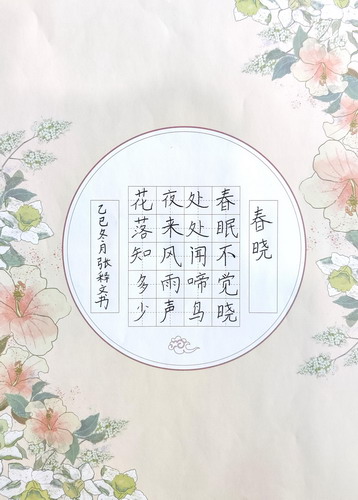 春晓
春眠不觉晓
处处闻啼鸟
夜来风雨声
花落知多少
乙巳冬月张梓文书